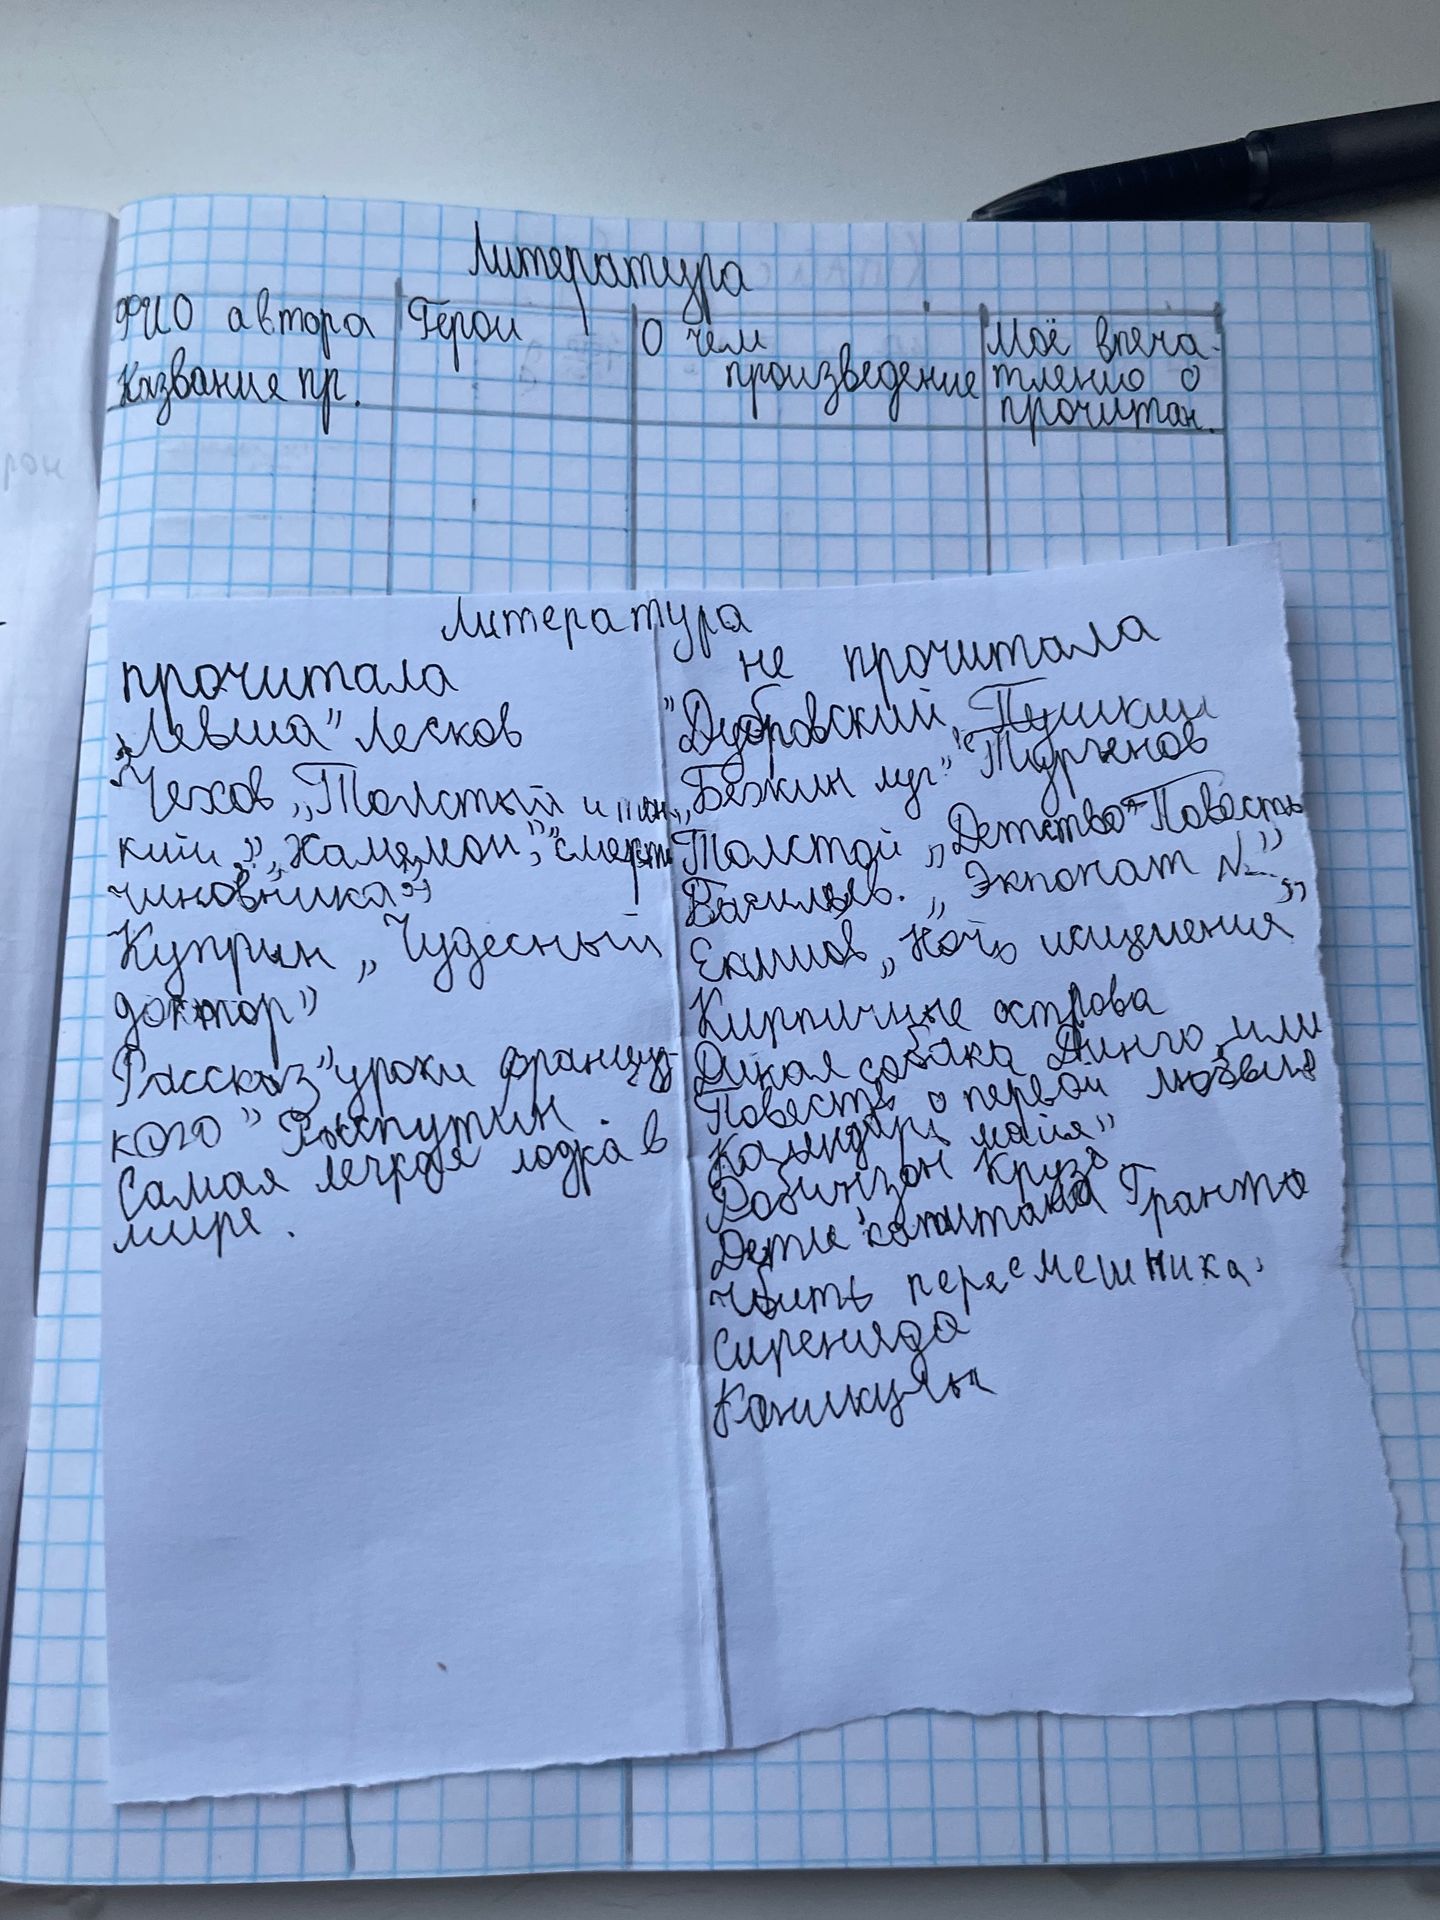 Литература
ФИО автора
Название пр.
Герои
О чём
произведение
Моё впеча-
тление о
прочитан.
Литература
прочитала
„Левша” Лесков
Чехов „Толстый и тон
кий”, „Хамелеон”, „смерть
чиновника”
Куприн „Чудесный
доктор”
Рассказ "уроки француз-
кого" Распутин
Самая легкая лодка в
мире.
не прочитала
"Дубровский, Пушкин
„Бежин луг" Тургенов
Толстой „Детство" Повесть
Васильев. „Экпонат №..."
Екимов „Ночь исцеления"
Кирпичные острова
Дикая собака Динго, или
Повесть о первой любви
Календарь майя"
Робинзон Крузо
Дети капитана Гранта
Убить пересмешника.
Сиренида
Каникулы